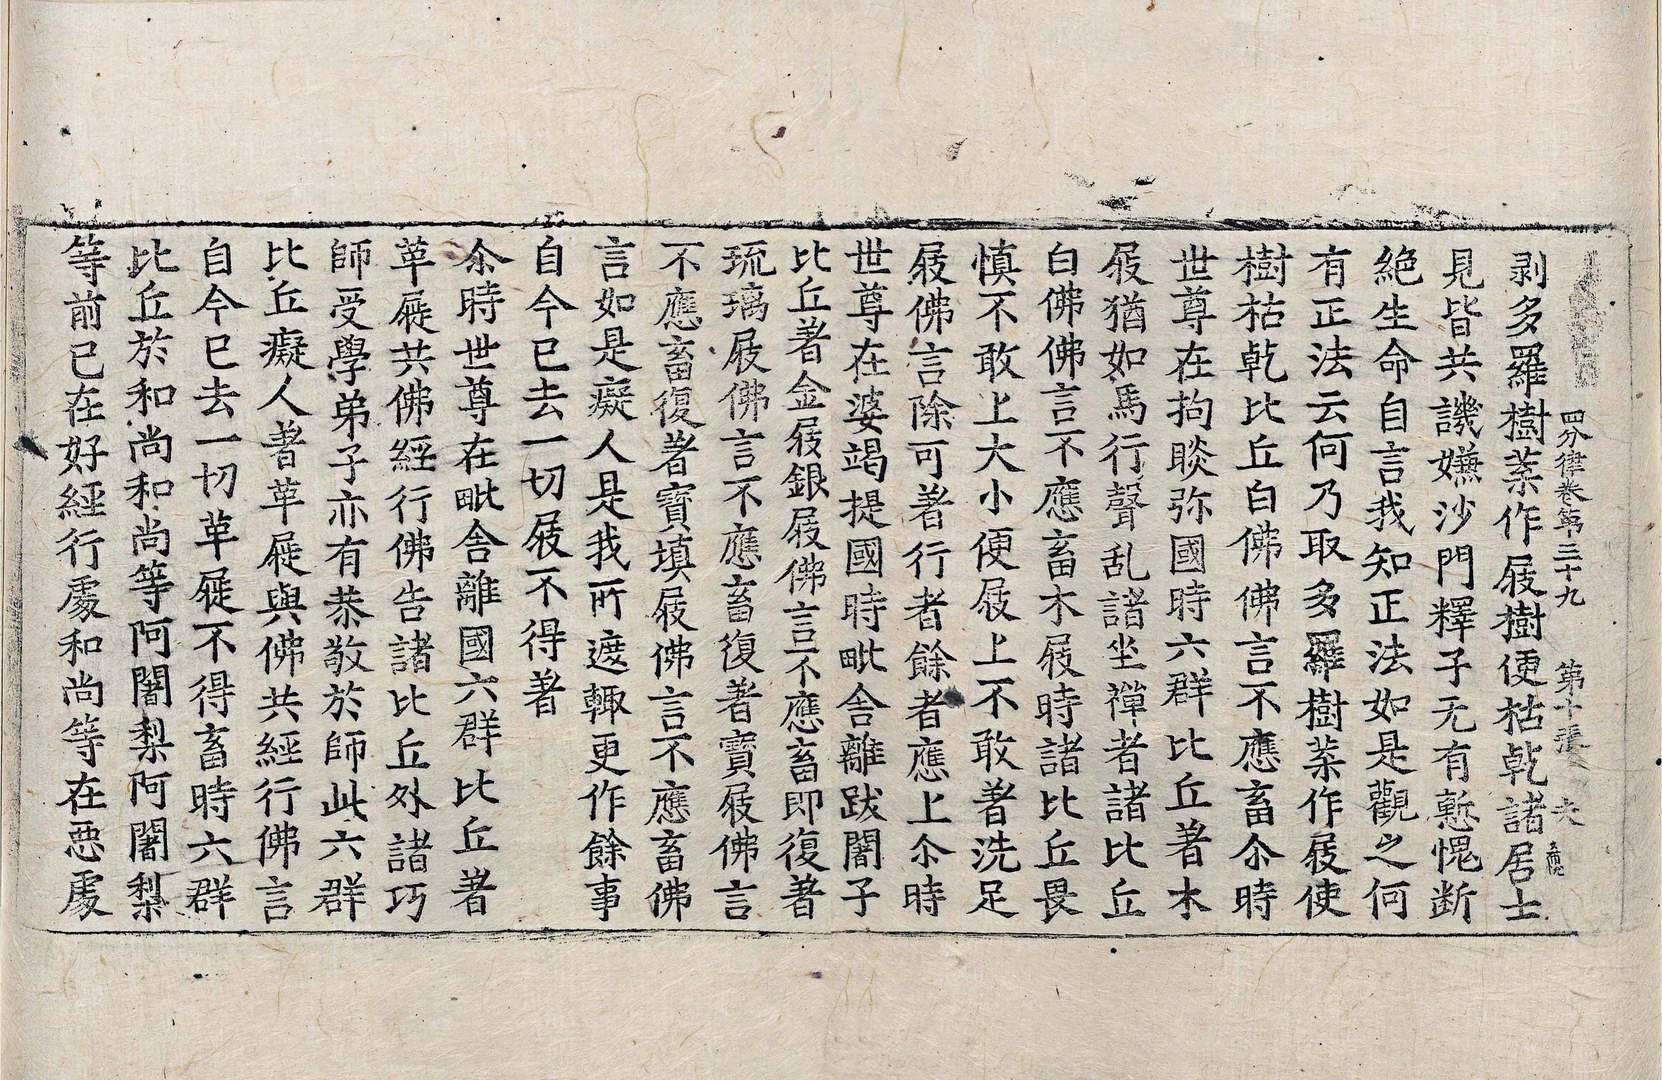 四分律卷第三十九 第十張 火
剥多羅樹葉作屐樹便枯乾諸居士
見皆共譏嫌沙門釋子无有慙愧断
絶生命自言我知正法如是觀之何
有正法云何乃取多羅樹葉作屐使
樹枯乾比丘白佛佛言不應畜尒時
世尊在拘睒弥國時六群比丘著木
屐猶如馬行聲乱諸坐禪者諸比丘
白佛佛言不應畜木屐時諸比丘畏
慎不敢上大小便屐上不敢著洗足
屐佛言除可著行者餘者應上尒時
世尊在婆竭提國時毗舎離跋闍子
比丘著金屐銀屐佛言不應畜即復著
琉璃屐佛言不應畜復著寶屐佛言
不應畜復著寶填屐佛言不應畜佛
言如是癡人是我所遮輙更作餘事
自今已去一切屐不得著
尒時世尊在毗舎離國六群比丘著
革屣共佛經行佛告諸比丘外諸巧
師受學弟子亦有恭敬於師此六群
比丘癡人著革屣與佛共經行佛言
自今已去一切革屣不得畜時六群
比丘於和尚和尚等阿闍梨阿闍梨
等前已在好經行處和尚等在惡處